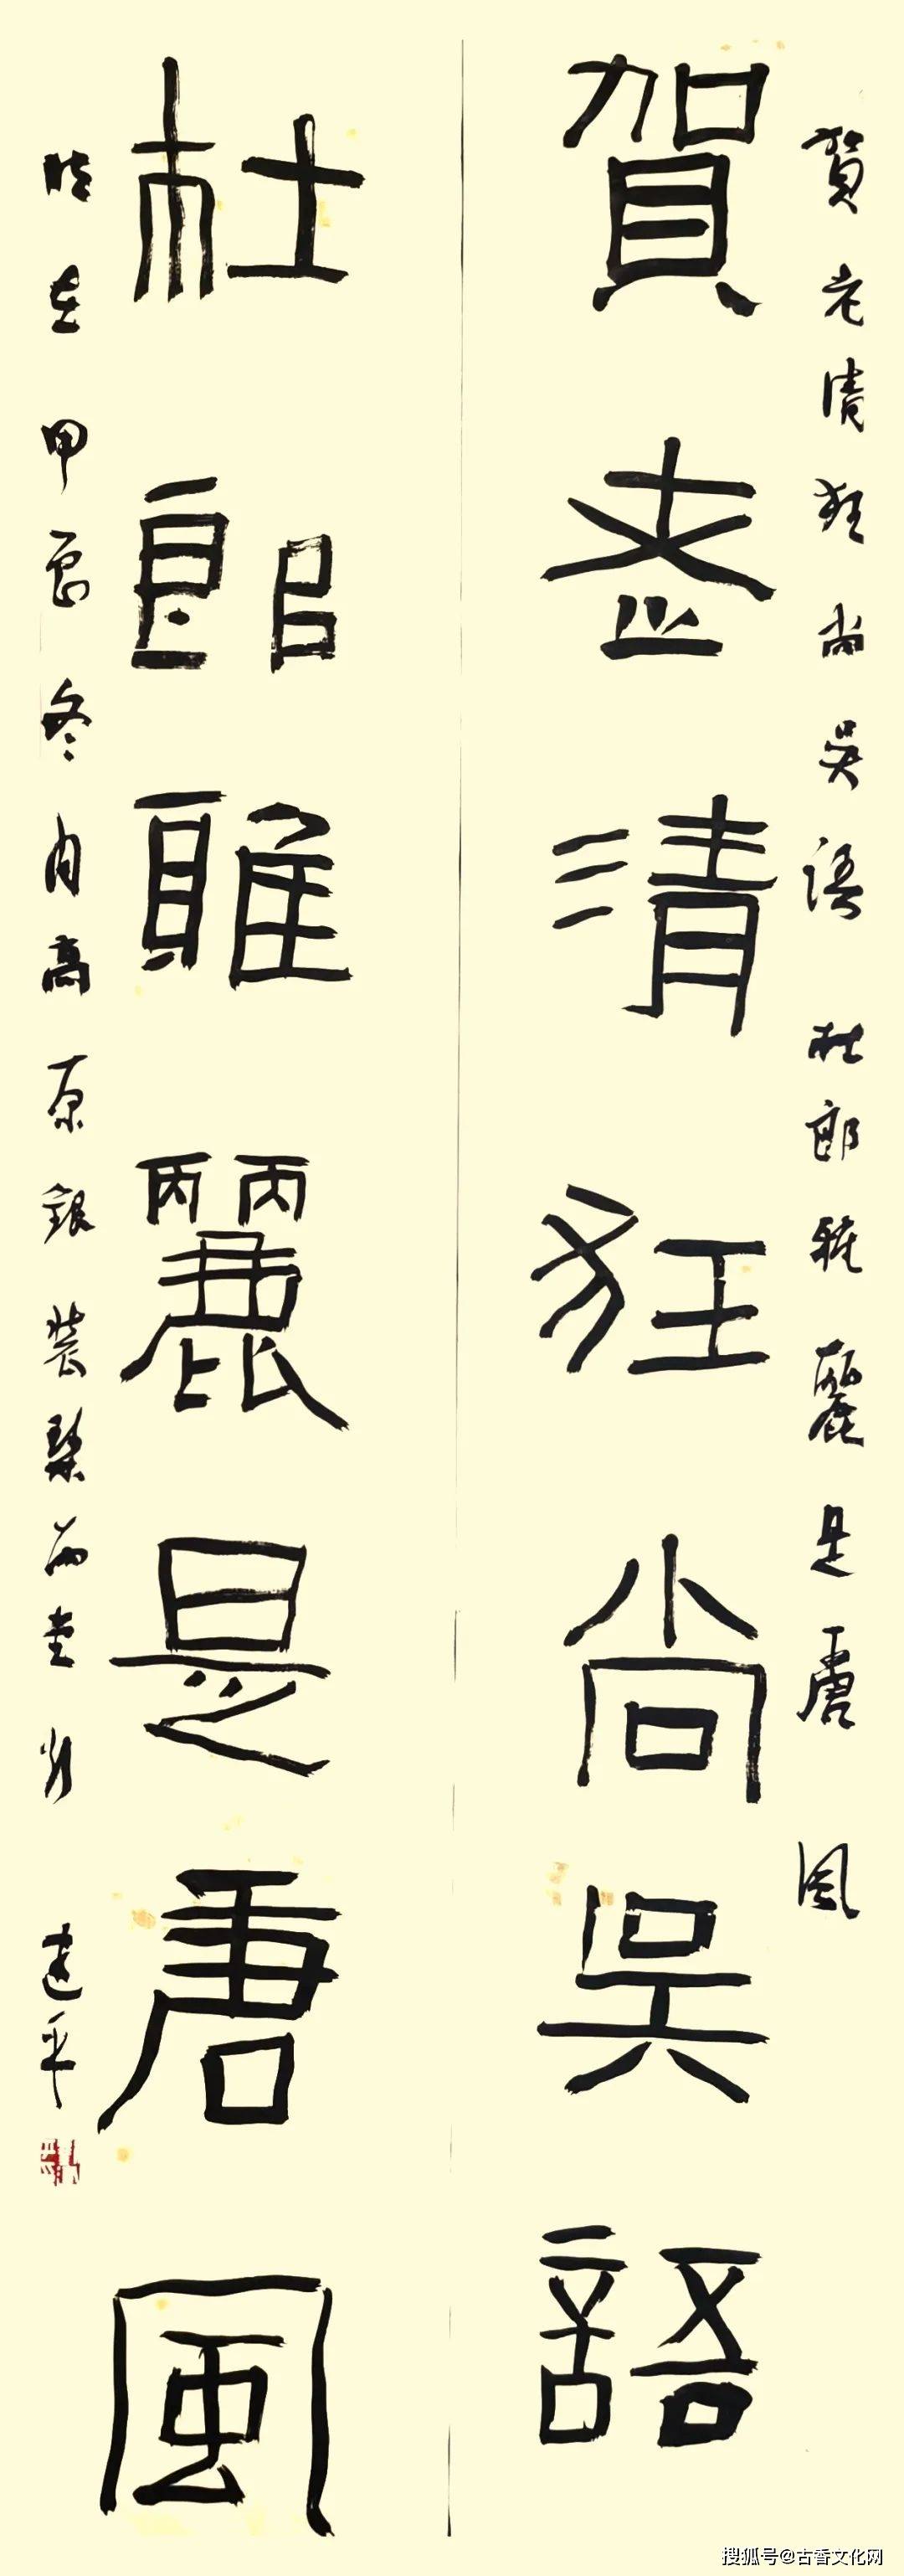 賀老清狂尚吳語杜郎雅麗是唐風
賀老清狂尚吳語
杜郎雅麗是唐風
時在甲辰冬月高原銀裝 建平
搜狐号@古香文化网